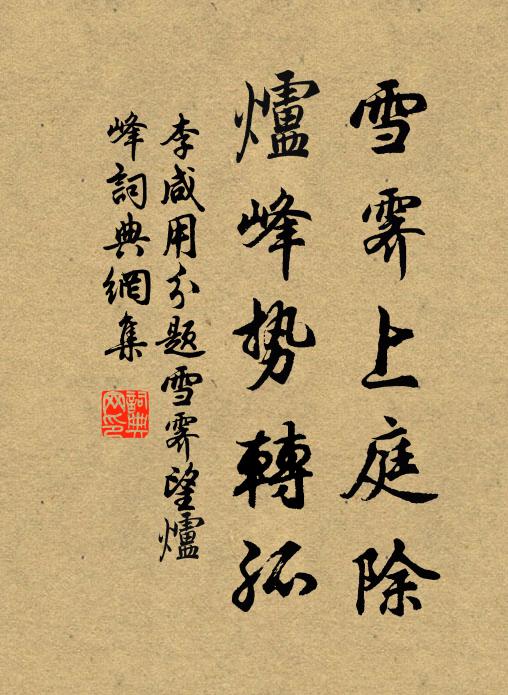 雪霽上庭除
爐峰勢轉孤
李咸用分題雪霽望爐
峰詞典網集
詞典
网印